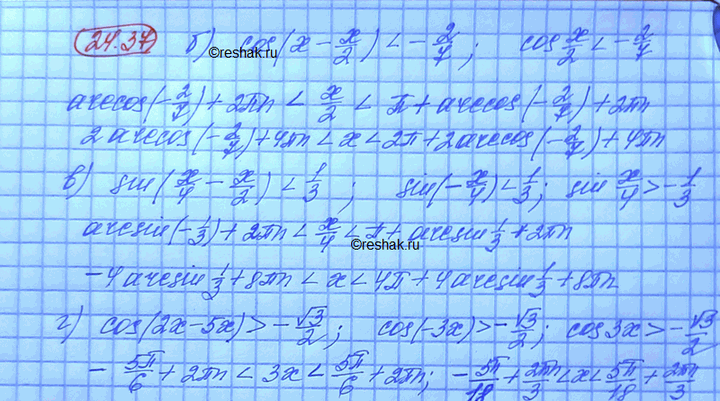 24.37 б) cos(x - x/2) < -2/7; cos x/2 < -2/7
©reshak.ru
arccos(-2/7) + 2πn < x/2 < π + arccos(-2/7) + 2πn
2 arccos(-2/7) + 4πn < x < 2π + 2 arccos(-2/7) + 4πn
в) sin(x/4 - x/2) < 1/3; sin(-x/4) < 1/3; sin x/4 > -1/3
arcsin(-1/3) + 2πn < x/4 < π + arcsin 1/3 + 2πn
©reshak.ru
-4 arcsin 1/3 + 8πn < x < 4π + 4 arcsin 1/3 + 8πn
г) cos(2x - 5x) > -√3/2; cos(-3x) > -√3/2; cos 3x > -√3/2
-5π/6 + 2πn < 3x < 5π/6 + 2πn; -5π/18 + 2πn/3 < x < 5π/18 + 2πn/3